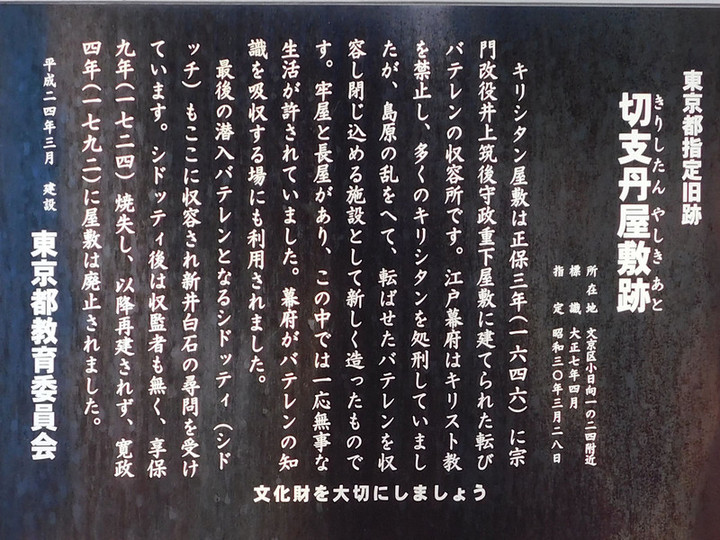 東京都指定旧跡
切支丹屋敷跡
きりしたん やしき あと
所在地 文京区小日向一の二四附近
標識 大正七年四月
指定 昭和三〇年三月二八日
キリシタン屋敷は正保三年(一六四六)に宗
門改役井上筑後守政重下屋敷に建てられた転び
バテレンの収容所です。江戸幕府はキリスト教
を禁止し、多くのキリシタンを処刑していまし
たが、島原の乱をへて、転ばせたバテレンを収
容し閉じ込める施設として新しく造ったもので
す。牢屋と長屋があり、この中では一応無事な
生活が許されていました。幕府がバテレンの知
識を吸収する場にも利用されました。
最後の潜入バテレンとなるシドッティ(シド
ッチ)もここに収容され新井白石の尋問を受け
ています。シドッティ後は収監者も無く、享保
九年(一七二四)焼失し、以降再建されず、寛政
四年(一七九二)に屋敷は廃止されました。
平成二四年三月 建設
東京都教育委員会
文化財を大切にしましょう